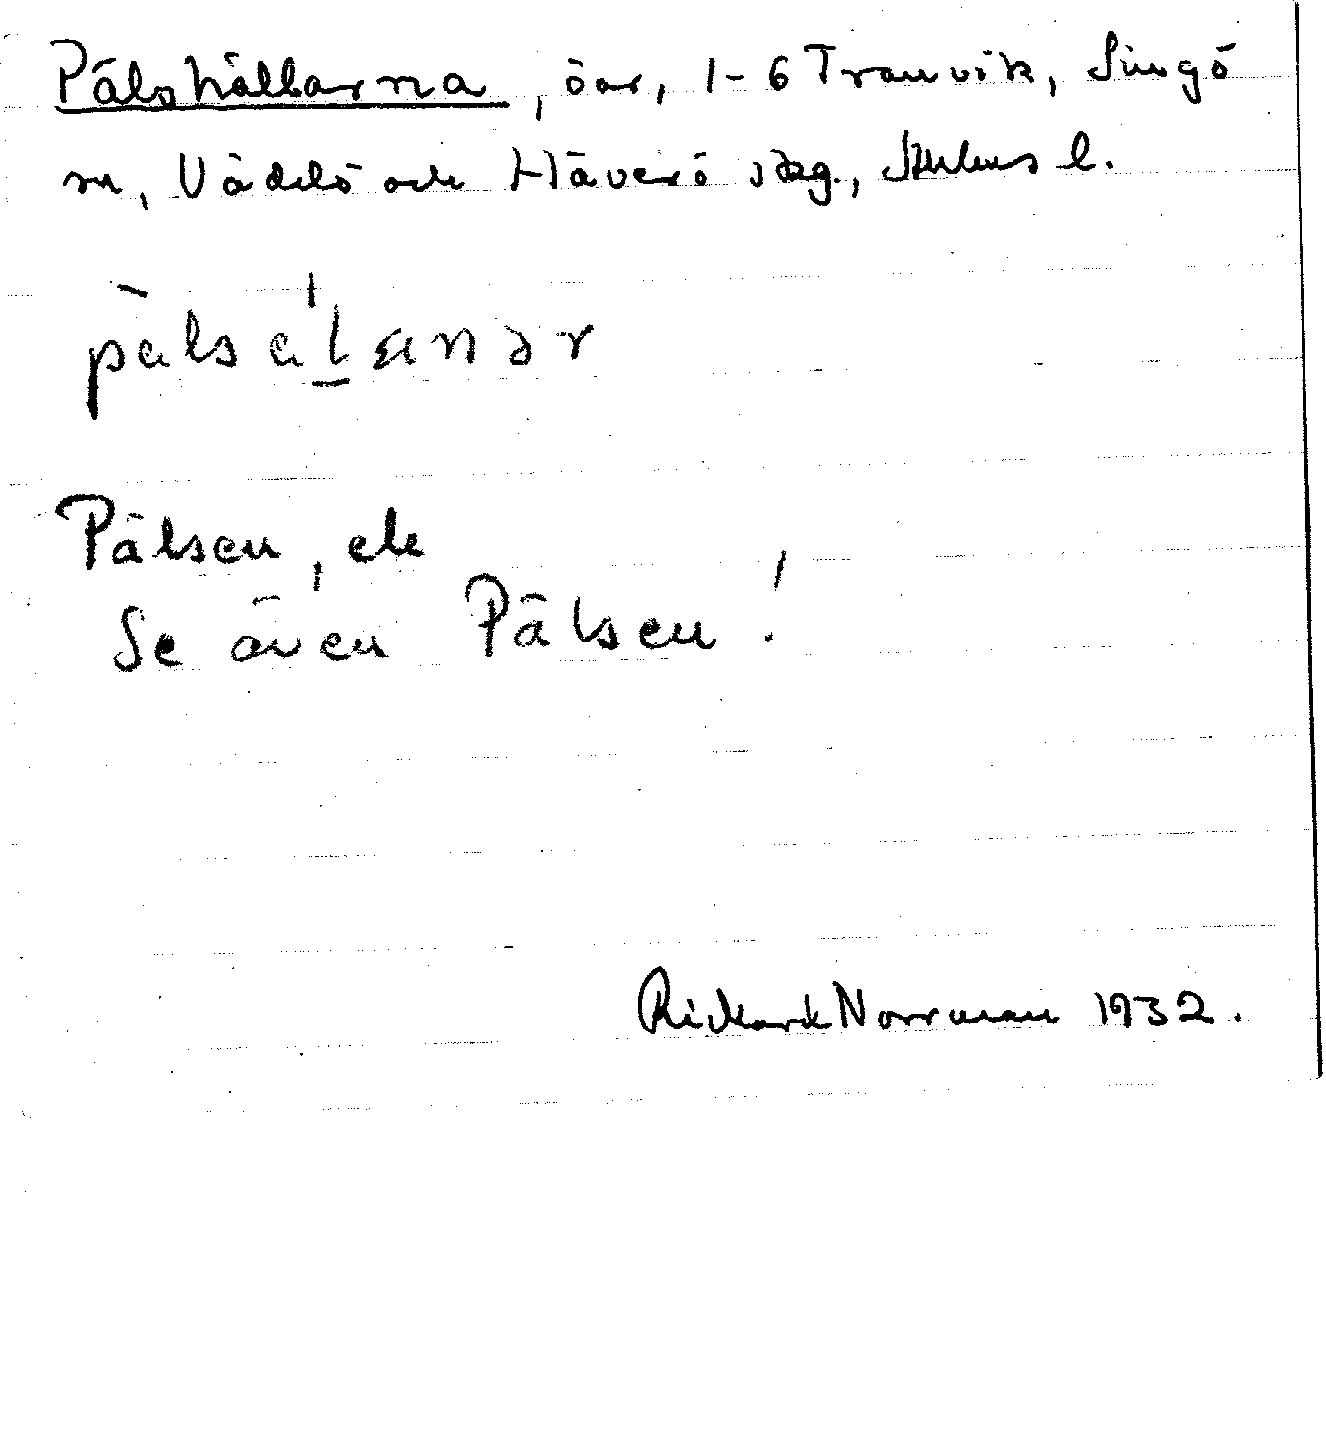 Pälshällarna, öar, 1-6 Tranvik, Singö
sn, Väddö och Häverö skg., Sthlms l.
Pälsen, ek
Se även Pälsen!
Rickard Norrman 1932.